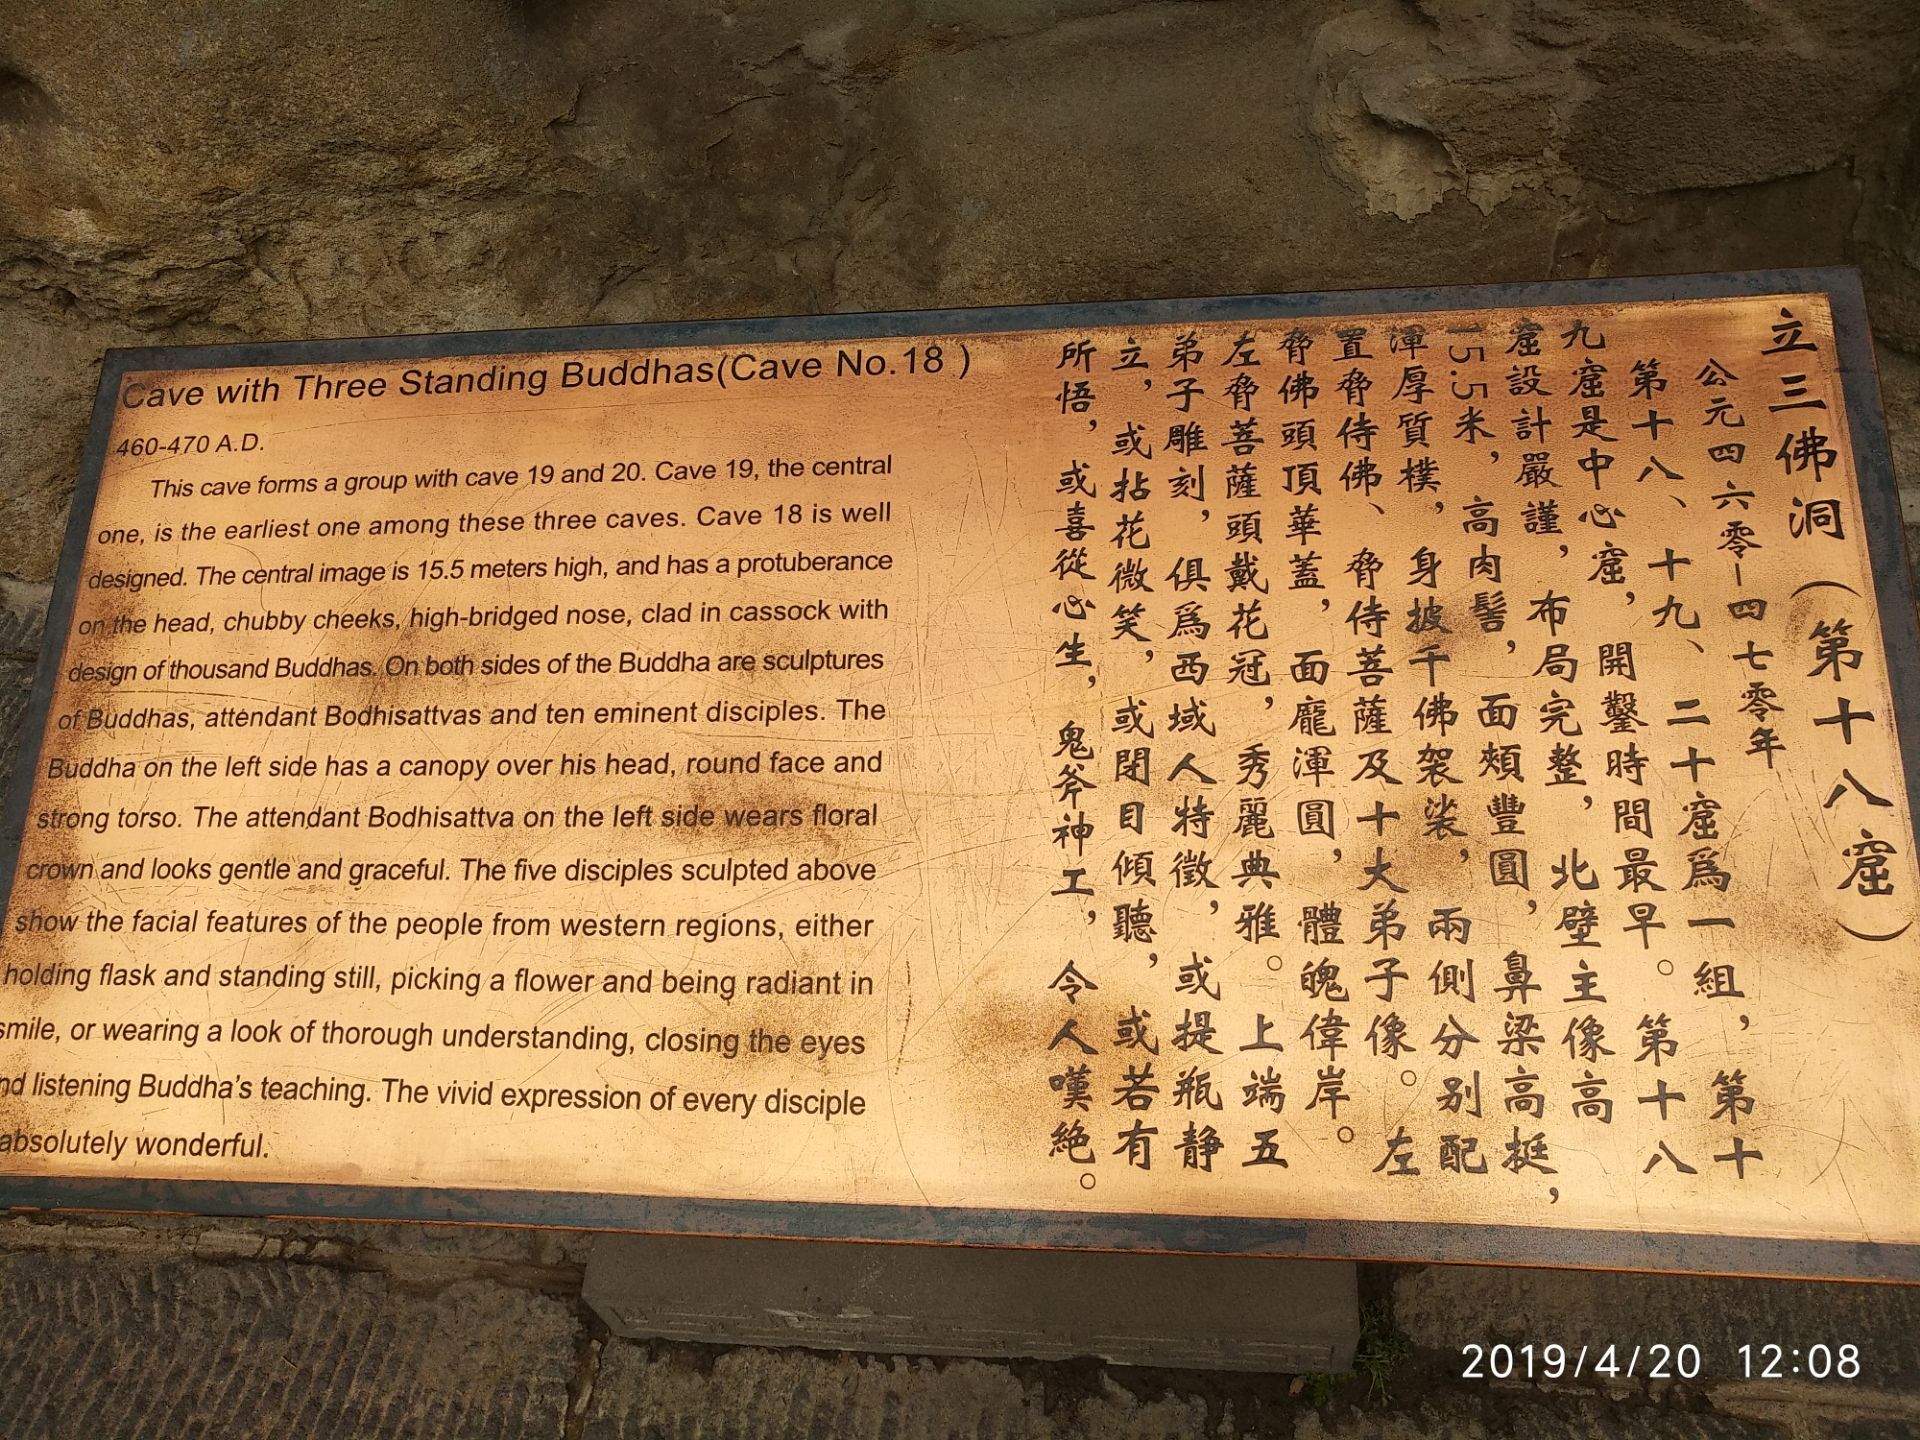 Cave with Three Standing Buddhas(Cave No.18 )
460-470 A.D.
This cave forms a group with cave 19 and 20. Cave 19, the central
one, is the earliest one among these three caves. Cave 18 is well
designed. The central image is 15.5 meters high, and has a protuberance
on the head, chubby cheeks, high-bridged nose, clad in cassock with
design of thousand Buddhas. On both sides of the Buddha are sculptures
of Buddhas, attendant Bodhisattvas and ten eminent disciples. The
Buddha on the left side has a canopy over his head, round face and
strong torso. The attendant Bodhisattva on the left side wears floral
crown and looks gentle and graceful. The five disciples sculpted above
show the facial features of the people from western regions, either
holding flask and standing still, picking a flower and being radiant in
smile, or wearing a look of thorough understanding, closing the eyes
nd listening Buddha's teaching. The vivid expression of every disciple
absolutely wonderful.
立三佛洞（第十八窟）
公元四六零—四七零年
第十八、十九、二十窟爲一組，第十
九窟是中心窟，開鑿時間最早。第十八
窟設計嚴謹，布局完整，北壁主像高
15.5米，高肉髻，面頰豐圓，鼻梁高挺，
渾厚質樸，身披千佛袈裟，兩側分别配
置脅侍佛、脅侍菩薩及十大弟子像。左
脅佛頭頂華蓋，面龐渾圓，體魄偉岸。
左脅菩薩頭戴花冠，秀麗典雅。上端五
弟子雕刻，俱爲西域人特徵，或提瓶静
立，或拈花微笑，或閉目傾聽，或若有
所悟，或喜從心生，鬼斧神工，令人嘆絶。
2019/4/20 12:08